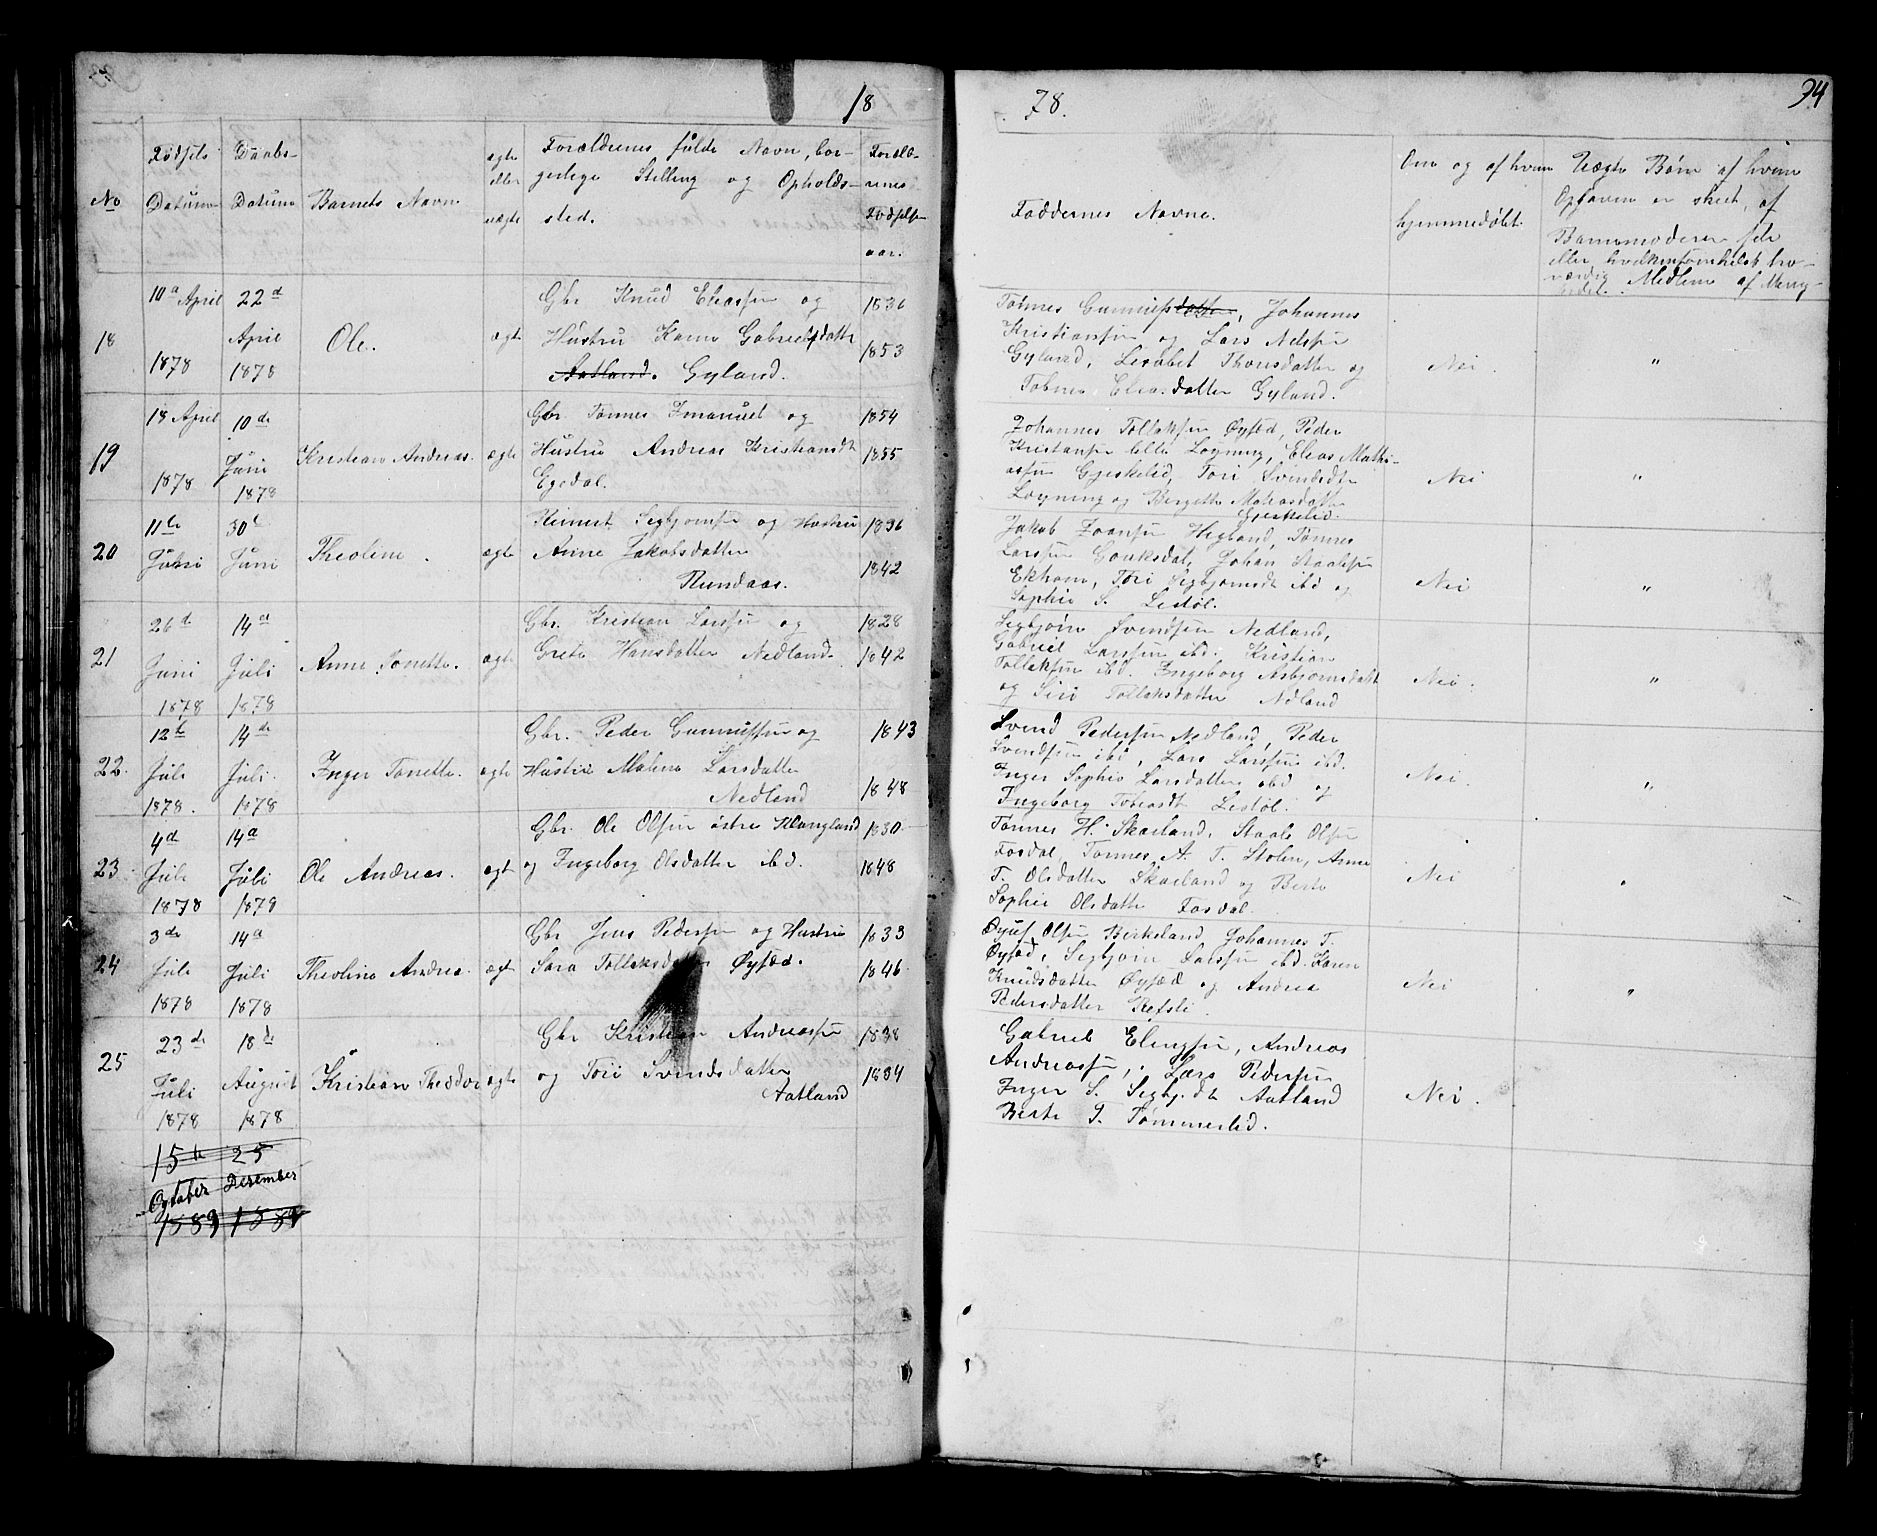 18
78.
34
No
Fødsels
Datum
Daabs-
Datum
Barnets Navn
ægte
eller
uægte
Forældrenes fulde Navn, bor-
gerlige Stilling og Opholds-
sted.
Foræld-
renes
Fødsels-
aar.
Faddernes Navne.
Om og af hvem
hjemmedøbt.
Uægte Børn af hvem
Opgaven er skeet, af
Barnemoderen selv
eller hvilkensomhelst tro-
værdig Medlem af Menig-
18
10d April
1878
22d
April
1878
Ole.
ægte
Gbr Knud Eliassen og
Hustru Karen Gabrielsdatter
Aatland. Gyland.
1836
1853
Tønnes Gunnufsdatter, Johannes
Kristiansen og Lars Nelsen
Gyland, Lisabet Thorsdatter og
Tobine Eliasdatter Gyland.
Nei.
"
19
18 April
1878
10de
Juni
1878
Kristian Andreas.
ægte
Gbr Tønnes Imanuel og
Hustru Andrea Kristiansdt
Egedal.
1854
1855
Johannes Tollaksen Øysæd, Peder
Kristansen lille Løyning, Elias Mathi-
asen Gjeskelid, Tori Svendsdtr
Løyning og Bergitte Matiasdatter
Gjeskelid.
Nei
"
20
11te
Juni
30te
Juni
Theoline.
ægte
Segbjørnsen og Hustru
Anne Jakobsdatter
Rundaas.
1836
1842
Jakob Zoansen Hegland, Tønnes
Larsen Gouksdal, Johan Staalesen
Tori Segbjørnsdt ibd og
Sophie S. Lestøl.
Nei
"
21
26d
Juni
1878
14d
Juli
1878
Anne Tonette.
ægte
Gbr. Kristian Larsen og
Grete Hansdatter Nedland.
1828
1842
Segbjørn Svendsen Nedland,
Gabriel Larsen ibd. Kristian
Tollaksen ibd. Ingeborg Asbjørnsdatt
og Siri Tollaksdatter Nedland
Nei.
"
22.
12te
Juli
1878.
14de
Juli.
1878
Inger Tonette.
ægte
Gbr. Peder Gunnufsen og
Hustru Malene Larsdatter
Nedland
1843
1848
Svend Pedersen Nedland, Peder
Svendsen ibd, Lars Larsen ibd.
Inger Sophie Larsdatter ibd og
Ingeborg Tobiasdt Lestøl.
Nei.
"
23
4d
Juli
1878
14d
Juli
1878
Ole Andreas.
ægte
Gbr. Ole Olsen østre Klungland
og Ingeborg Olsdatter ibd.
1830
1848
Tønnes H. Skaeland, Staale Olsen
Fosdal, Tønnes A. T. Stolen, Anne
T. Olsdatter Skaeland og Berte
Sophie Olsdatter Fosdal.
Nei
"
24
3de
Juli
1878
14d
Juli
1878
Theoline Andrea.
ægte
Gbr Jens Pedersen og Hustru
Sara Tollaksdatter Øysæd.
1833
1846.
Øyuf Olsen Birkeland, Johannes T.
Øysæd, Segbjørn Larsen ibd. Karen
Knudsdatter Øysæd og Andrea
Pedersdatter Refsli.
Nei
"
25
23de
Juli
1878
18de
August
1878
Kristian Theodor
ægte
Gbr Kristian Andreassen
og Tori Svendsdatter
Aatland
1838
1834
Gabriel Elingsen, Andreas
Andreassen, Lars Pedersen
Inger S. Segbj.dt Aatland
Berte T. Tømmerlid.
Nei.
15de
October
1889
25
Desember
1889